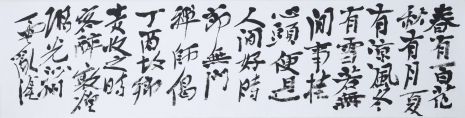 春有百花
秋有月夏
有涼風冬
有雪若無
閒事挂
心頭便是
人間好時
節無門
禪師偈
丁酉故鄉
麦收之時